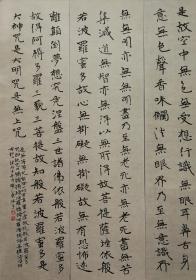 是故空中無色無受想行識無眼耳鼻舌身
意無色聲香味觸法無眼界乃至無意識界
無無明亦無無明盡乃至無老死亦無老死盡無苦
集滅道無智亦無得以無所得故菩提薩埵依般
若波羅蜜多故心無罣礙無罣礙故無有恐怖遠
離顛倒夢想究竟涅槃三世諸佛依般若波羅蜜多
故得阿耨多羅三藐三菩提故知般若波羅蜜多是
大神咒是大明咒是無上咒